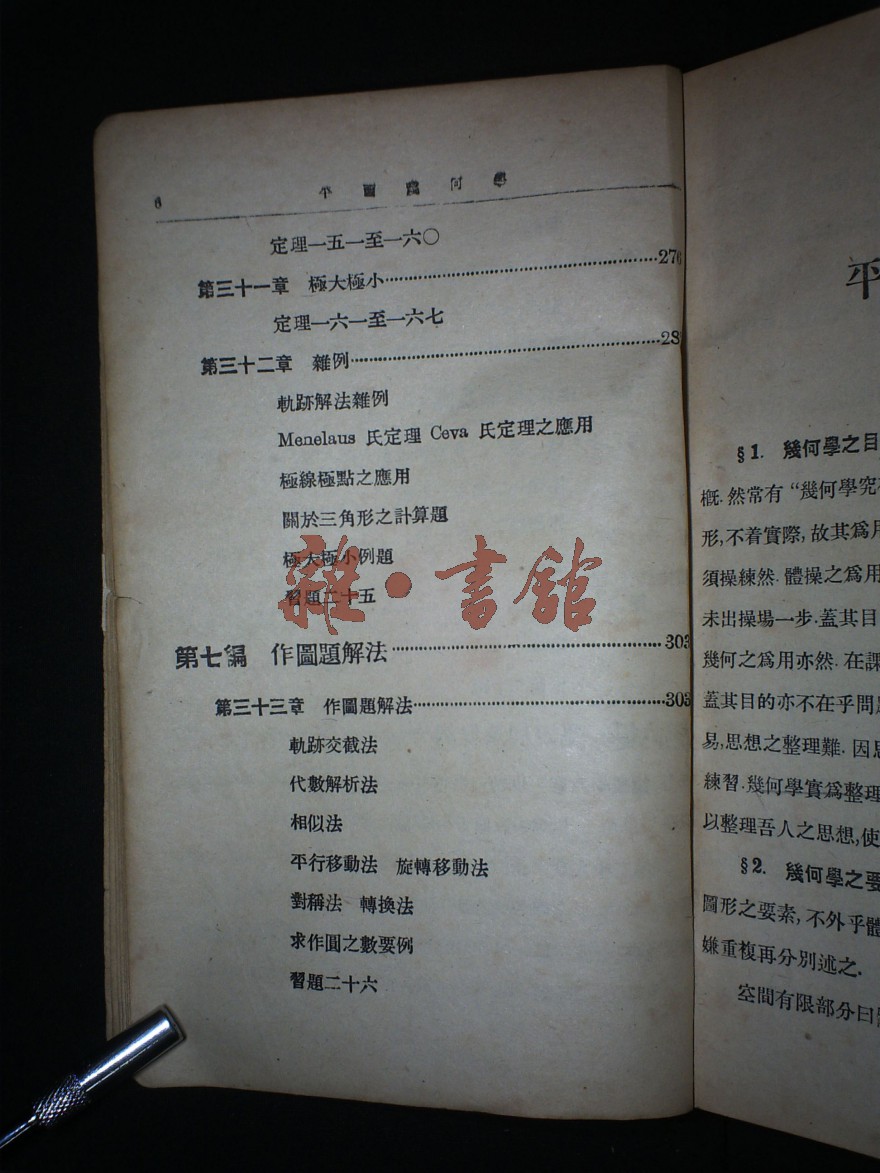 6 平面幾何學
定理一五一至一六〇
第三十一章 極大極小……276
定理一六一至一六七
第三十二章 雜例……28
軌跡解法雜例
Menelaus 氏定理 Ceva 氏定理之應用
極線極點之應用
關於三角形之計算題
極大極小例題
習題二十五
雜·書館
第七編 作圖題解法……303
第三十三章 作圖題解法……303
軌跡交截法
代數解析法
相似法
平行移動法 旋轉移動法
對稱法 轉換法
求作圓之數要例
習題二十六
平
§1. 幾何學之目
概.然常有“幾何學究
形,不着實際,故其爲用
須操練然.體操之爲用
未出操場一步.蓋其目
幾何之爲用亦然.在課
蓋其目的亦不在乎問
易,思想之整理難.因思
練習.幾何學實爲整理
以整理吾人之思想,使
§2. 幾何學之要
圖形之要素,不外乎體
嫌重複再分別述之.
空間有限部分曰